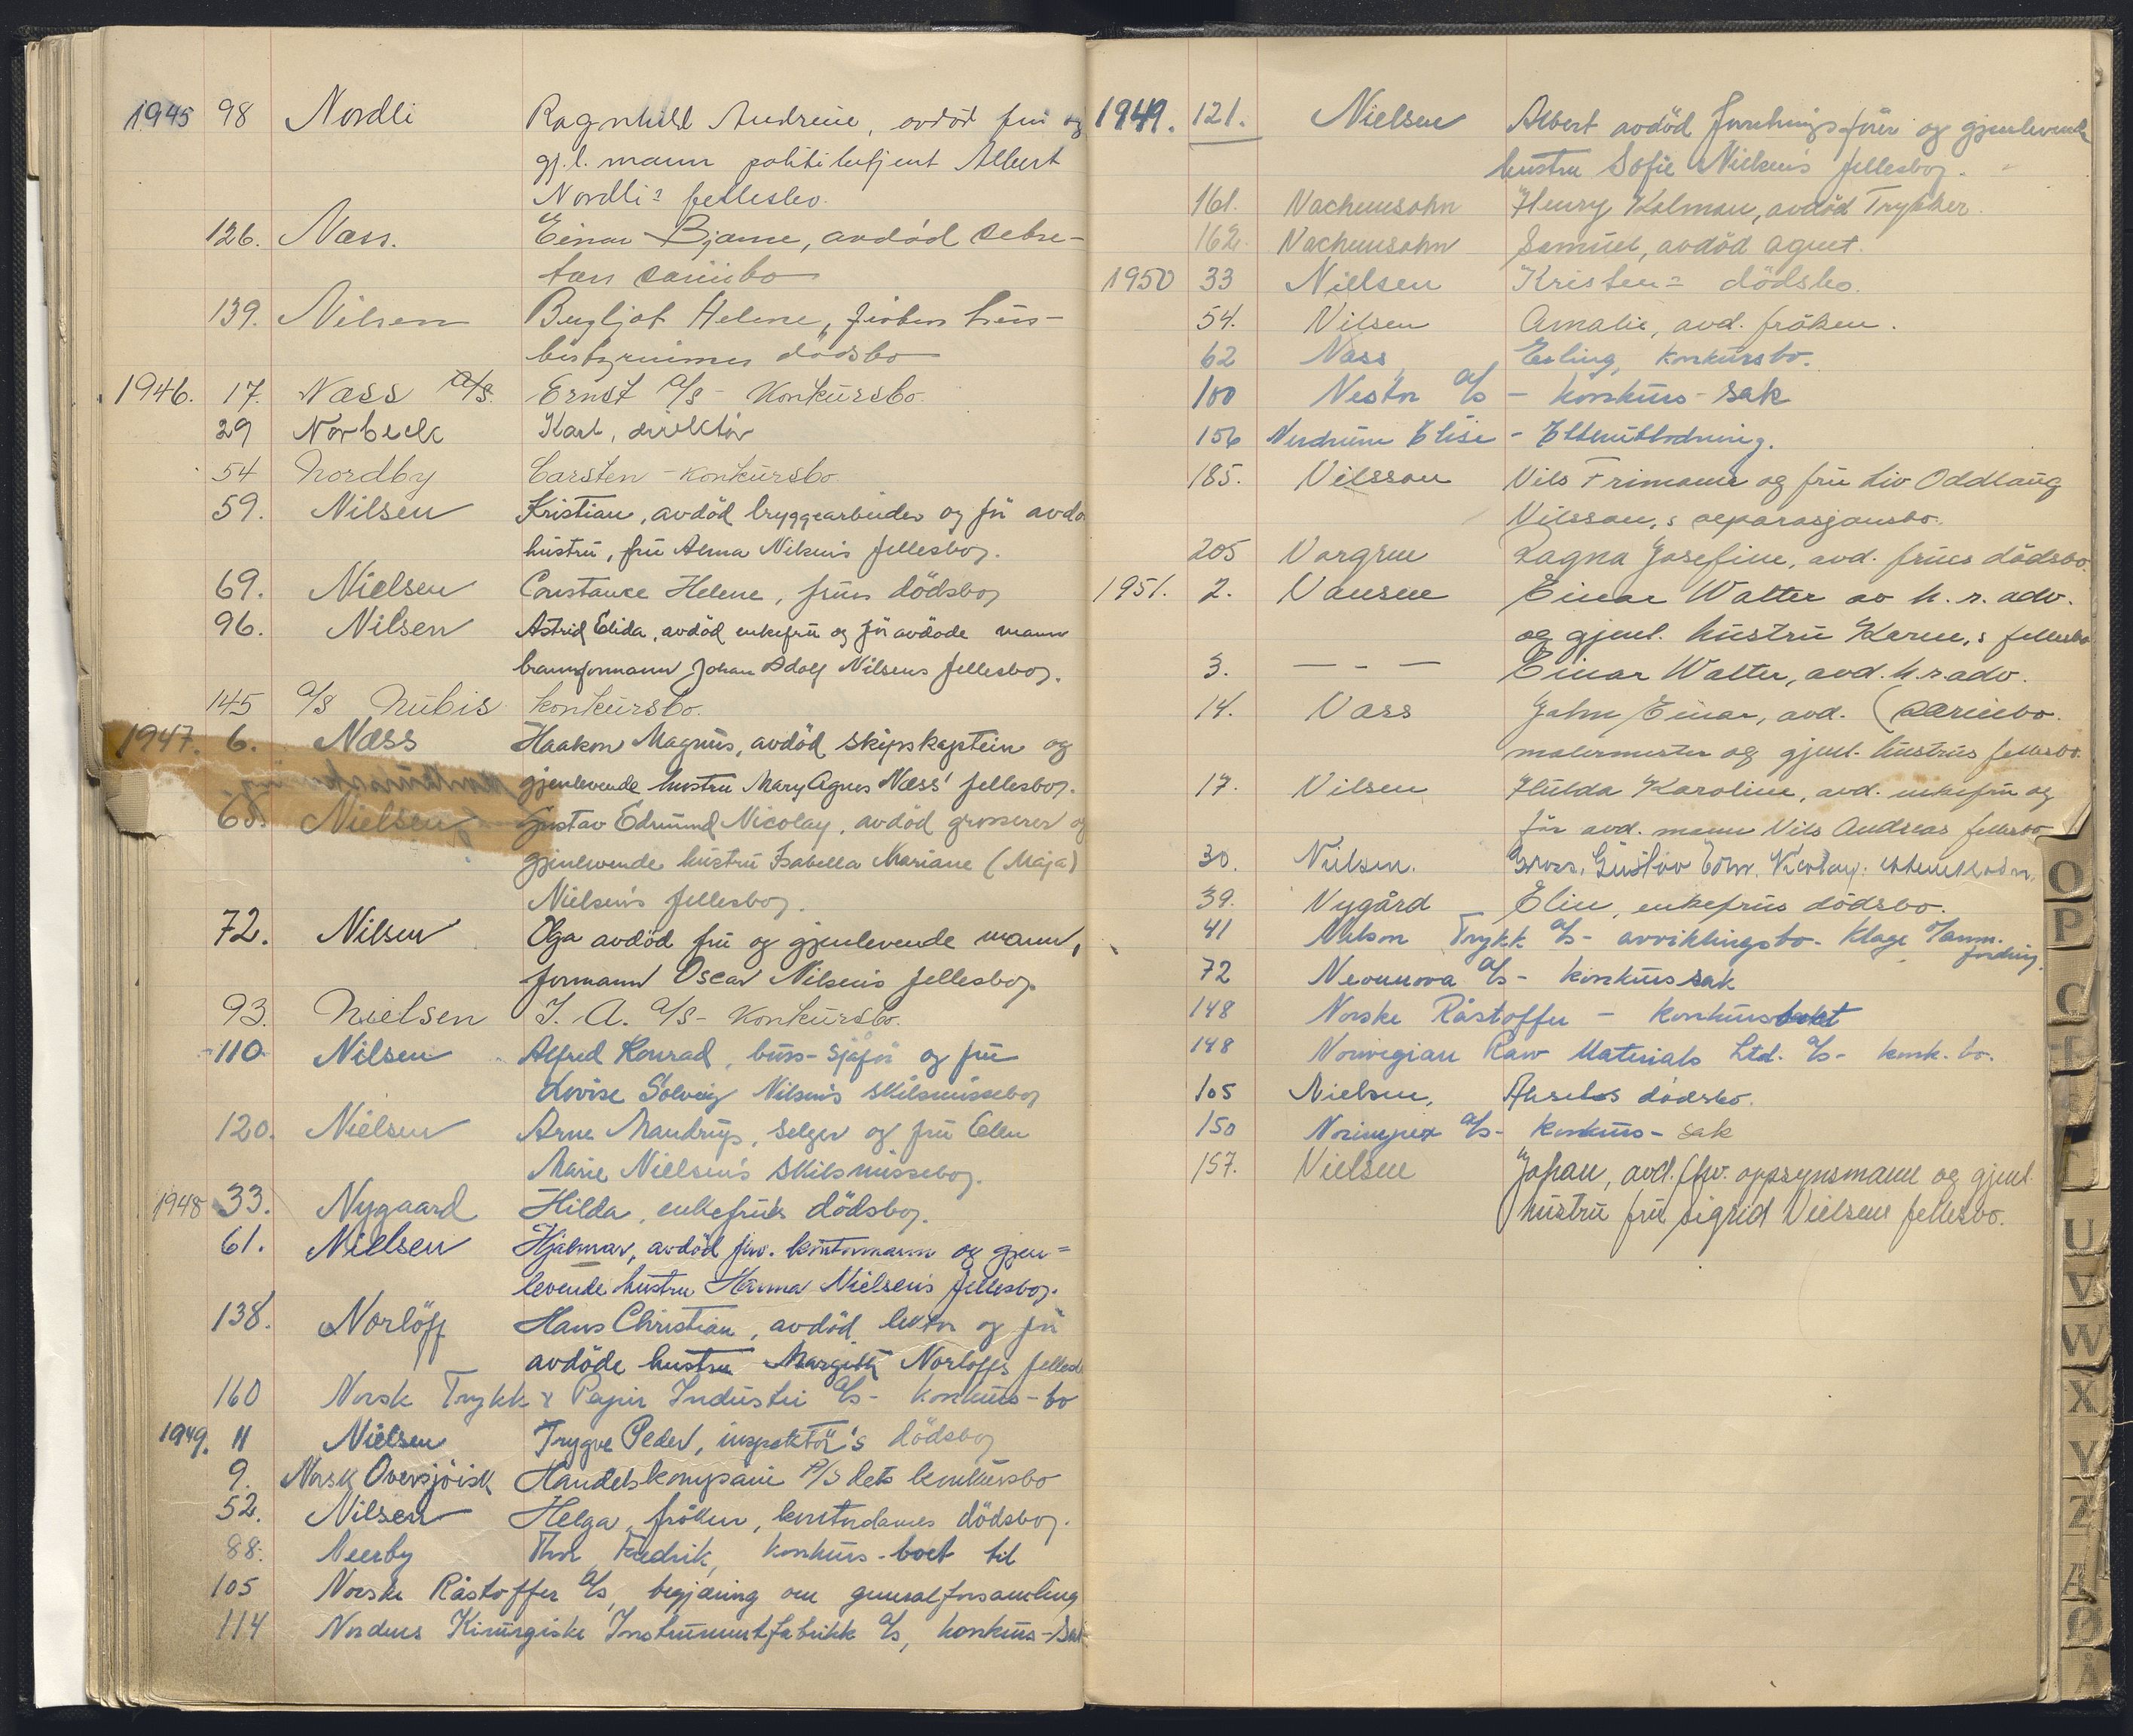 1945 98 Nordli Ragnhild Andrine, avdöd fru og
gj.l. mann politibetjent Albert
Nordli's fellesbo.
126. Næss. Einar Bjarne, avdöd sekre-
tærs særeibo
139. Nilsen Bergljot Helene, fröken hus-
bestyrerinnes dödsbo
1946. 17. Næss A/S. Ernst A/S - Konkursbo.
29 Norbeck Karl, direktör
54 Nordby Carsten - Konkursbo.
59. Nilsen Kristian, avdöd bryggearbeider og för avdö
hustru, fru Alma Nilsen's fellesboj.
69. Nielsen Constance Helene, frues dödsboj
96. Nilsen Astrid Elida, avdöd enkefru og för avdöde mann
brannformann Johan Adolf Nilsens fellesboj.
145 A/S Nubis konkursbo.
1947. 6. Næss Haakon Magnus, avdöd skipskaptein og
gjenlevende hustru Mary Agnes Næss' fellesboj.
68. Nielsen Gustav Edmund Nicolay, avdöd grosserer og
gjenlevende hustru Isabella Mariane (Maja)
Nielsen's fellesboj.
72. Nilsen Olga avdöd fru og gjenlevende mann,
formann Oscar Nilsen's fellesboj.
93. Nielsen I. A. A/S - Konkursbo.
110 Nilsen Alfred Konrad, buss-sjåför og fru
Lovise Solveig Nilsen's skilsmisseboj
120. Nielsen Arne Mandrup, selger og fru Ellen
Marie Nielsen's skilsmisseboj.
1948 33. Nygaard Hilda, enkefrues dödsboj.
61. Nielsen Hjalmar, avdöd fhv. kontormann og gjen=
levende hustru Hanna Nielsen's fellesboj.
138. Norlöff Hans Christian, avdöd lektor og för
avdöde hustru Margith Norloffs fellesb
160 Norsk Trykk & Papir Industri A/S - konkurs-bo
1949. 11 Nielsen Trygve Peder, inspektör's dödsboj
9. Norsk Oversjöisk Handelskompani A/S dets konkursbo
52. Nilsen Helga, fröken, kontordames dödsboj.
88. Neerby Thor Fredrik, konkurs-boet til
105 Norske Råstoffer A/S, begjæring om generalforsamling
114 Nordens Kirurgiske Instrumentfabrikk A/S, konkurs-sak
1949. 121. Nielsen Albert avdöd forretningsförer og gjenlevende
hustru Sofie Nielsen's fellesboj.
161. Nachemsohn Henry Kalman, avdöd Trykker.
162. Nachemsohn Samuel, avdöd agent.
1950 33 Nielsen Kristen's dödsbo.
54. Nilsen Amalie, avd. fröken.
62 Næss Erling, konkursbo.
100 Nestor A/S - konkurs-sak
156 Nerdrum Elise - Etterutlodning.
185. Nilsson Nils Frimann og fru Liv Oddlaug
Nilsson,s separasjonsbo.
205 Norgren Ragna Josefine, avd. frues dödsbo.
1951. 2. Nansen Einar Walter av h. r. adv.
og gjenl. hustru Karen,s fellesbo
3. — - — Einar Walter, avd. h.r.adv.
14. Næss John Einar, avd. (særeiebo.
malermester og gjenl. hustrus fellesbo.
17. Nilsen Hulda Karoline, avd. enkefru og
för avd. mann Nils Andreas fellesbo
30. Nielsen. Gross. Gustav Edm. Nicolay: etterutlodn.
39. Nygård Elin, enkefrus dödsbo.
41 Nelson Trykk A/S - avviklingsbo - Klage o/anm.
fordring.
72 Neonnova A/S - konkurssak
148 Norske Råstoffer - konkursboet
148 Norwegian Raw Materials Ltd. A/S - konk. bo.
105 Nielsen, Aksels dödsbo.
150 Norimpex A/S - konkurs - sak
157. Nielsen Johan, avd. fhv. oppsynsmann og gjenl.
hustru fru Sigrid Nielsens fellesbo.
O
P
U
V
W
X
Y
Z
Æ
Ø
Å